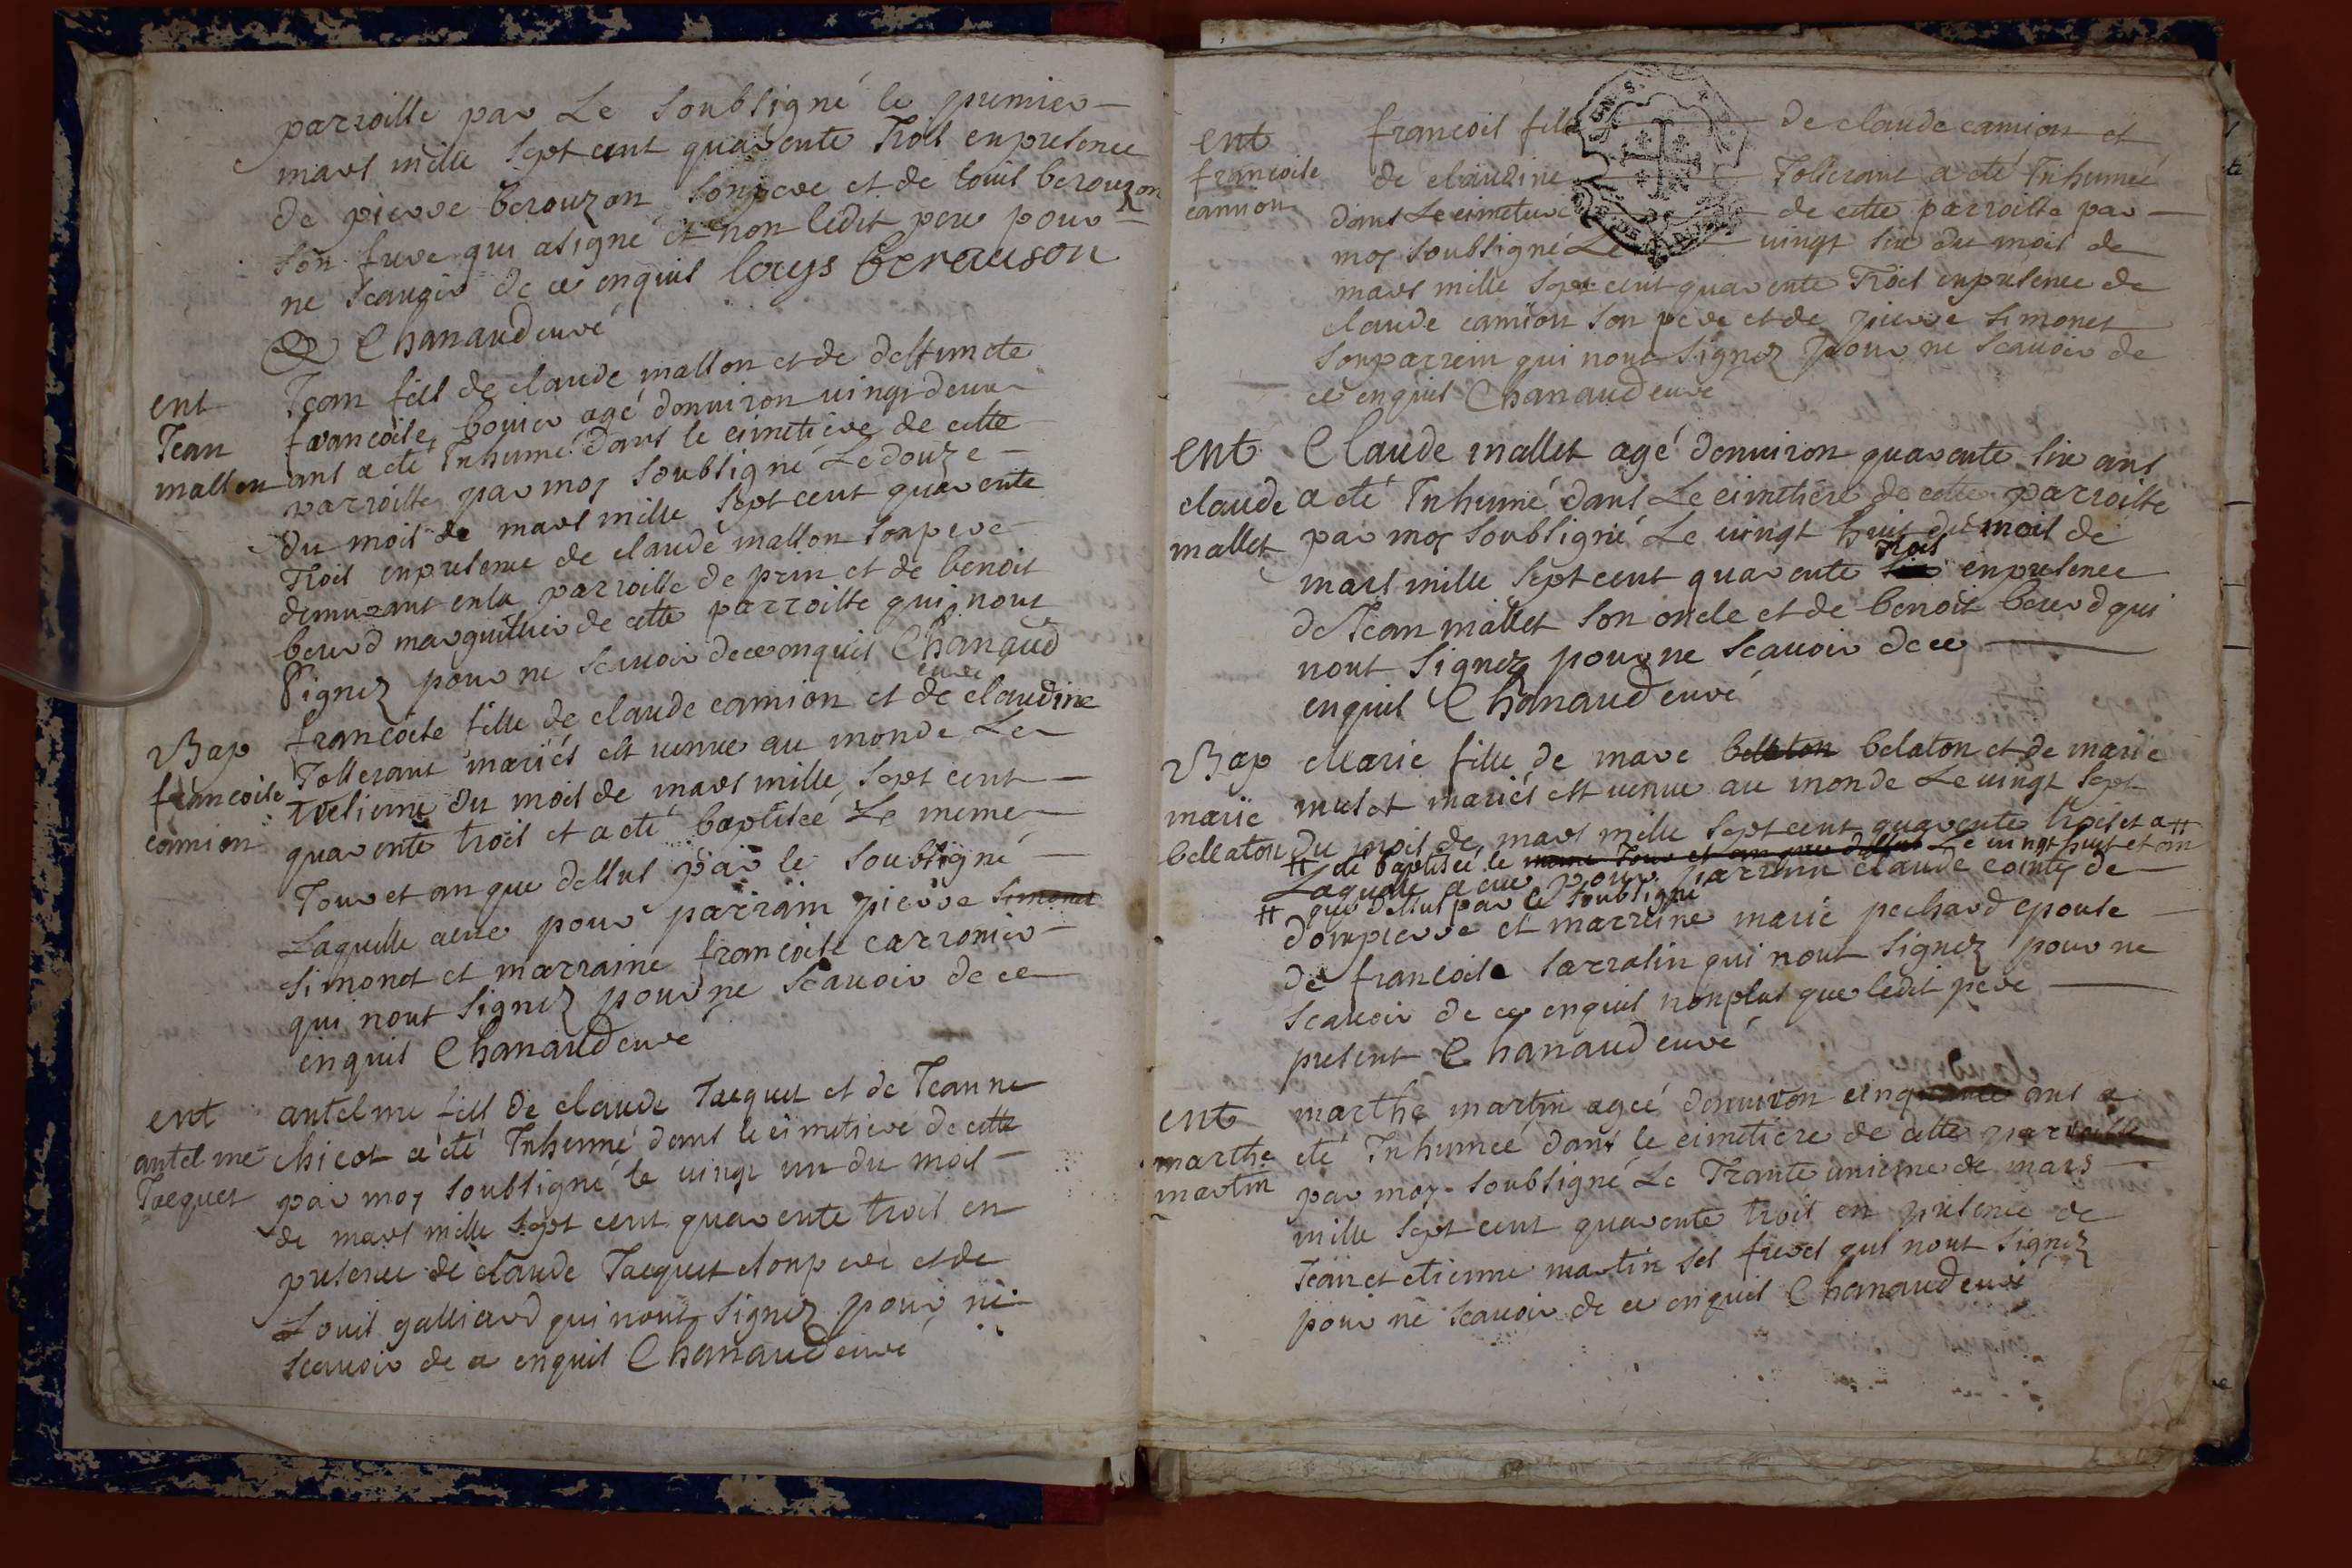 parroisse par Le soubsigné le premier
mars mille sept cent quarente Trois en presence
de pierre berouzon son pere et de louis berouzon
son frere qui a signé et non ledit pere pour
ne scauoir de ce enquis louys berauson
Chanaud curé
ent
Jean
masson
Jean fils de claude masson et de deffuncte
francoise bouier agé denuiron uingt deux
ans a eté Inhumé dans le cimetiere de cette
parroisse par moy soubsigné Le douze
du mois de mars mille sept cent quarente
Trois en presence de claude masson son pere
demurant en la parroisse de prin et de benoit
beurd marguillier de cette parroisse qui nont
signez pour ne scauoir de ce enquis Chanaud
curé
Bap
francoise
camion
francoise fille de claude camion et de claudine
Tosserant mariés est uenue au monde Le
treisieme du mois de mars mille sept cent
quarente trois et a eté baptisée Le meme
Jour et an que dessus par le soubsigné
Laquelle a eue pour parrain pierre simonet
simonet et marraine francoise carronier
qui nont signez pour ne scauoir de ce
enquis Chanaud curé
ent
antelme
Jacquet
antelme fils de claude Jacquet et de Jeanne
chicot a été Inhumé dans le cimetiere de cette
par moy soubsigné le uingt un du mois
de mars mille sept cent quarente trois en
presence de claude Jacquet son pere et de
Louis galliard qui nont signez pour ne
scauoir de ce enquis Chanaud curé
ent
francoise
camion
francois fille de claude camion et
de claudine Tosserant a eté Inhumée
dans Le cimetiere de cette parroisse par
moy soubsigné Le uingt six du mois de
mars mille sept cent quarente Trois en presence de
claude camion son pere et de pierre simonet
son parrein qui nont signez pour ne scauoir de
ce enquis Chanaud curé
ent
claude
mallet
Claude mallet agé denuiron quarente six ans
a eté Inhumé dans Le cimetiere de cette parroisse
par moy soubsigné Le uingt huit du mois de
mars mille sept cent quarente Trois en presence
de Jean mallet son oncle et de benoit beurd qui
nont signez pour ne scauoir de ce
enquis Chanaud curé
Bap
marie
bellaton
Marie fille de marc bellaton belaton et de marie
muset mariés est uenue au monde Le uingt sept
du mois de mars mille sept cent quarente trois et a #
# eté baptisée le meme Jour et an que dessus Le uingt huit et an
Laquelle a eue pour parrein claude cointy de
# que dessus par le soubsigné
dompierre et marreine marie pechard epouse
de francoise sarrasin qui nont signez pour ne
scauoir de ce enquis non plus que ledit pere
present Chanaud curé
ent
marthe
martin
marthe martin agée denuiron cinquante ans a
eté Inhumée dans le cimetiere de cette parroisse
par moy soubsigné Le Trante unieme de mars
mille sept cent quarente trois en presence de
Jean et etienne martin ses freres qui nont signez
pour ne scauoir de ce enquis Chanaud curé